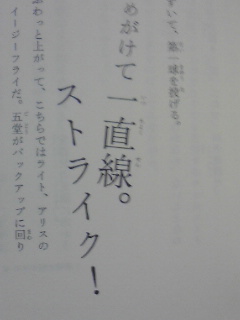 ずいて、第一球を投げる。
めがけて一直線。
ストライク！
ふわっと上がって、こちらではライト、アリスの
イージーフライだ。五堂がバックアップに回り